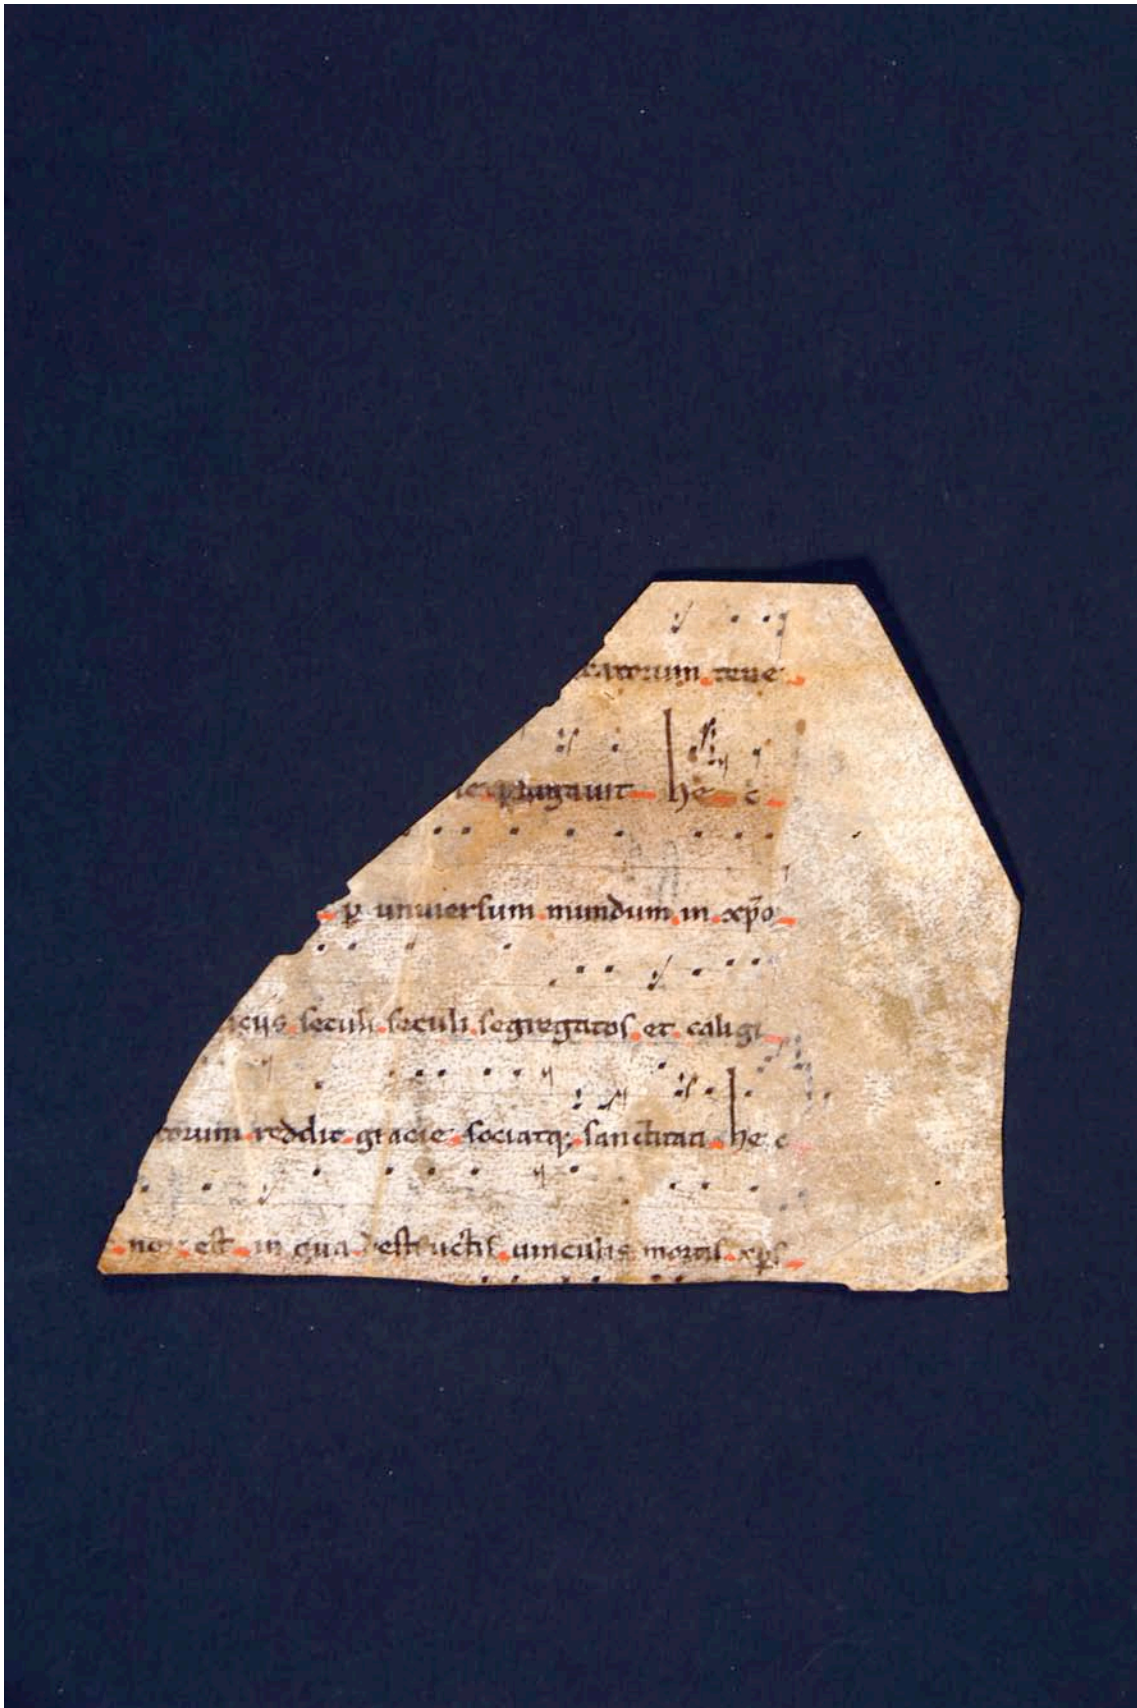 catorum tene
purgauit he c
ꝑ uniuersum mundum in xp̄o
icijs seculi seculi segregatos et caligi
torum reddit gracie sociatq; sanctitati he c
nox est in qua destructis uinculis mortis xp̄s